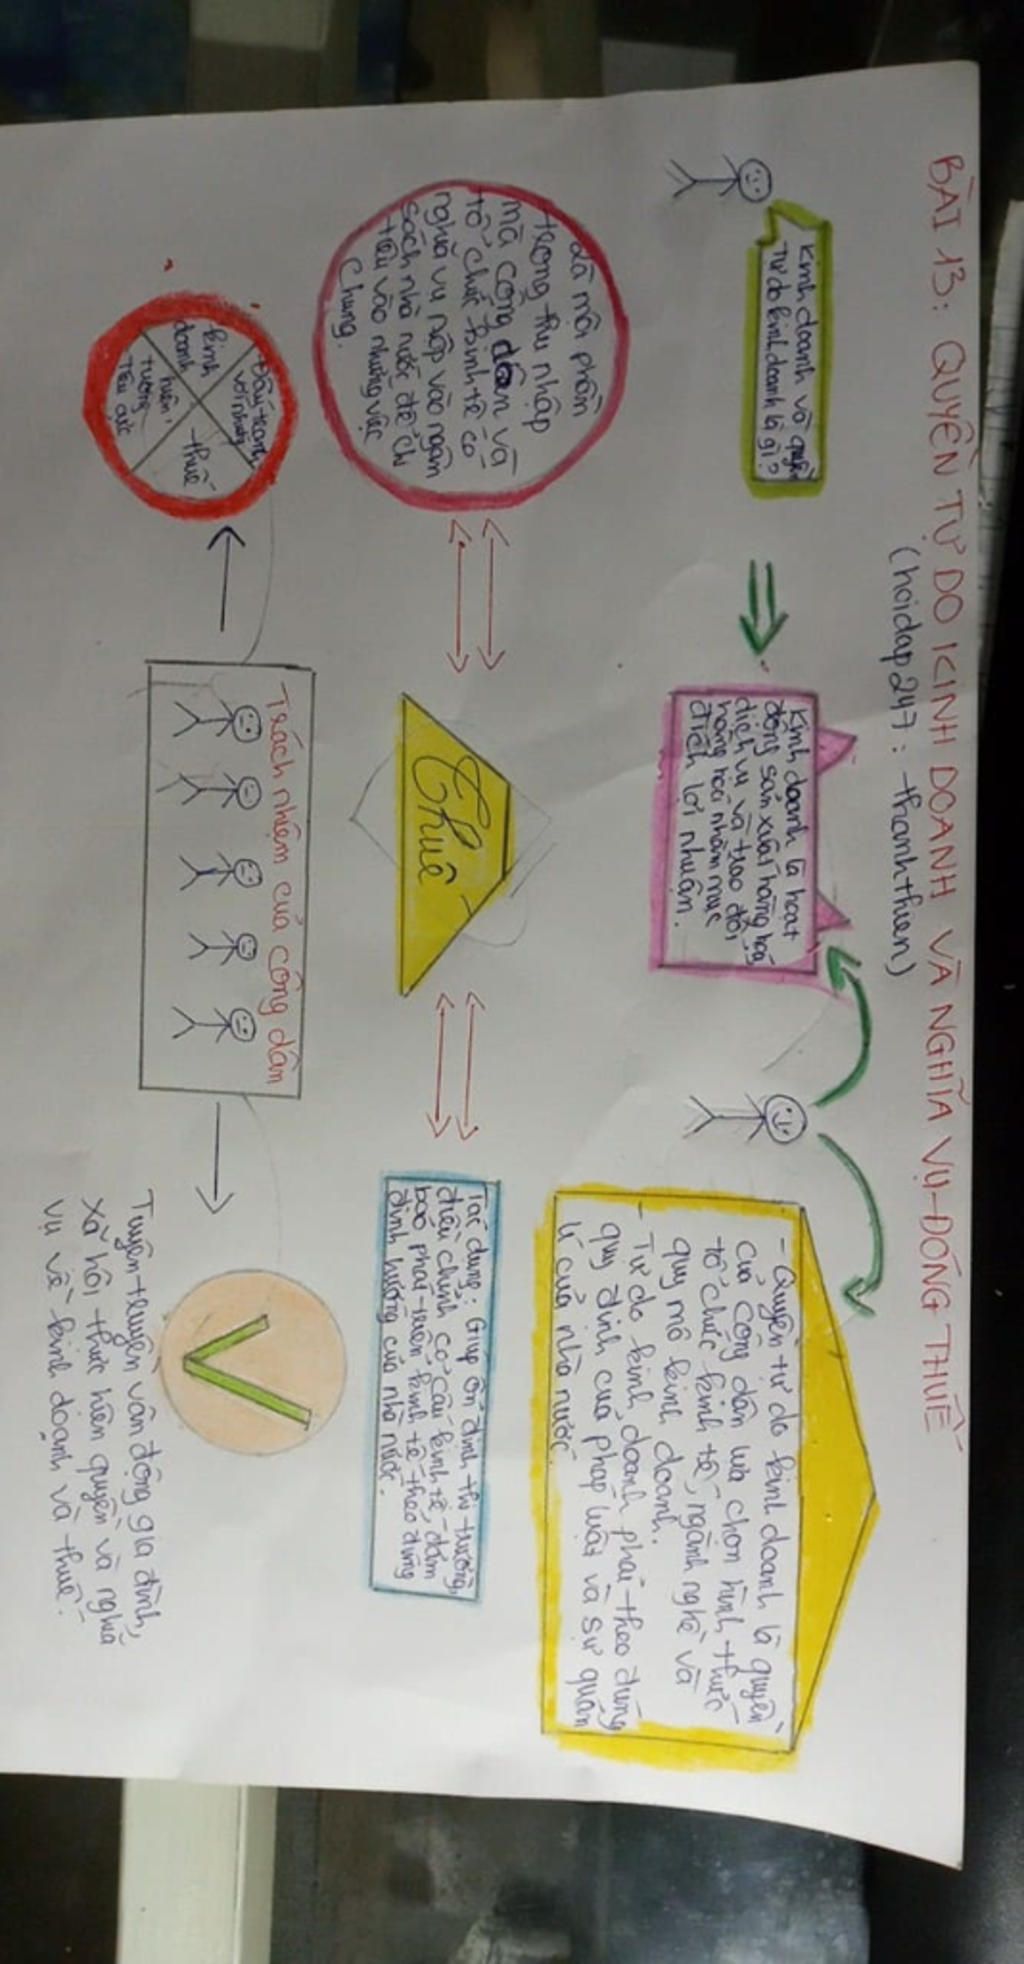 BÀI 13: QUYỀN TỰ DO KINH DOANH VÀ NGHĨA VỤ ĐÓNG THUẾ
(hoidap247: thanhthien)
Kinh doanh và quyền
Tự do kinh doanh là gì?
Kinh doanh là hoạt
động sản xuất hàng hoá,
dịch vụ và trao đổi
hàng hoá nhằm mục
đích lợi nhuận.
- Quyền tự do kinh doanh là quyền
của công dân lựa chọn hình thức
tổ chức kinh tế, ngành nghề và
quy mô kinh doanh.
- Tự do kinh doanh phải theo đúng
quy định của pháp luật và sự quản
lí của nhà nước.
Là một phần
trong thu nhập
mà công dân và
tổ chức kinh tế có
nghĩa vụ nộp vào ngân
sách nhà nước để chi
tiêu vào những việc
Chung.
Thuế
Tác dụng: Giúp ổn định thị trường,
điều chỉnh cơ cấu kinh tế, đảm
bảo phát triển kinh tế theo đúng
định hướng của nhà nước.
Đấu tranh
với những
hiện
tượng
tiêu cực
kinh
doanh
thuế
Trách nhiệm của công dân
Tuyên truyền vận động gia đình,
xã hội thực hiện quyền và nghĩa
vụ về kinh doanh và thuế.